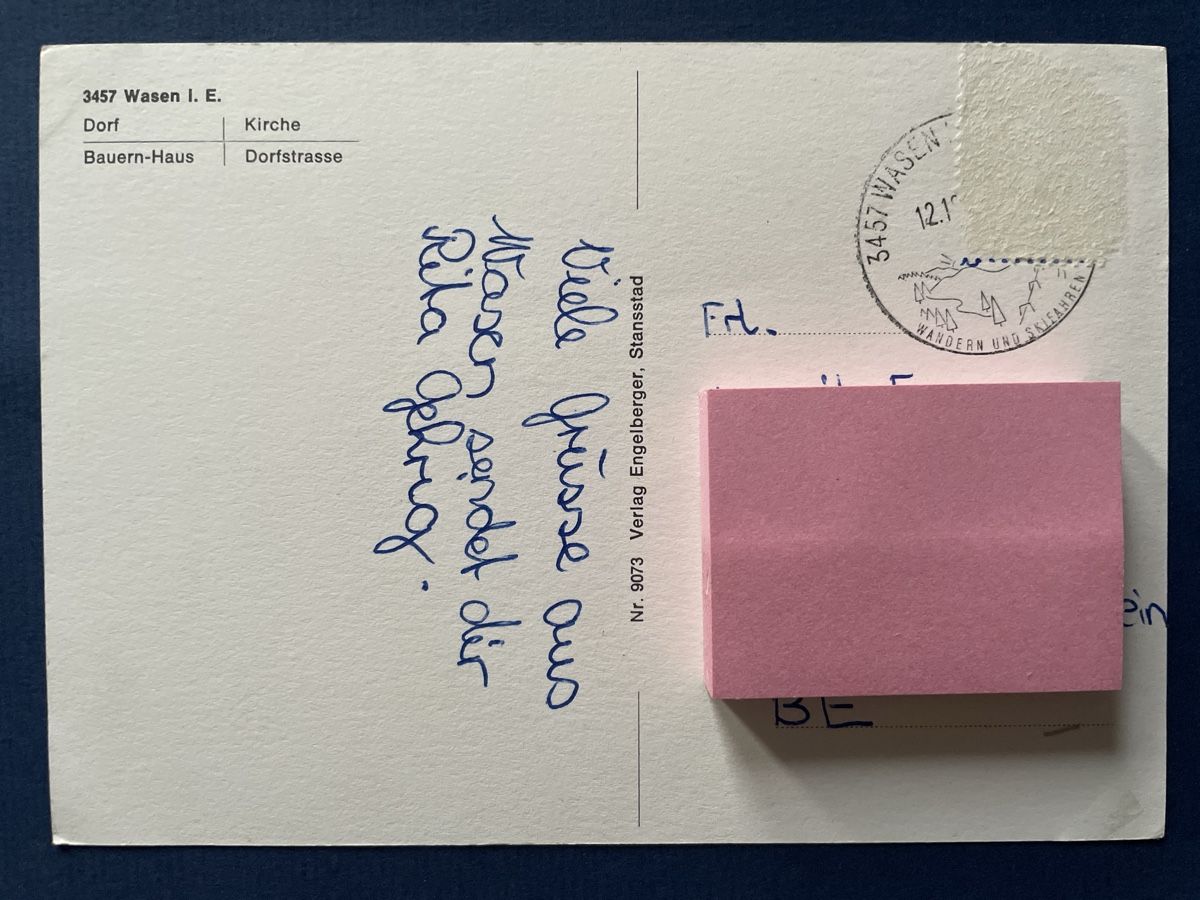 3457 Wasen I. E.
Dorf Kirche
Bauern-Haus Dorfstrasse
Viele Grüsse aus
Wasen sendet dir
Rita Gehrig.
Nr. 9073 Verlag Engelberger, Stansstad
3457 WASEN
12.1
WANDERN UND SKIFAHREN
Frl.
ein
BE